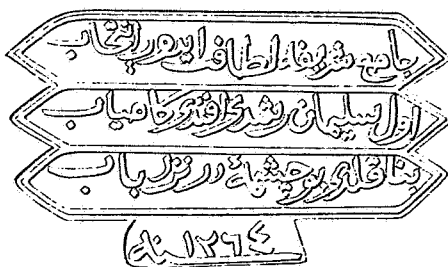 جامع شريفه ايدوب انتخاب
اول سليمان رشدى افندى كامياب
بنا قلدى بو چشمه در باب
سنه ١٢٦٤